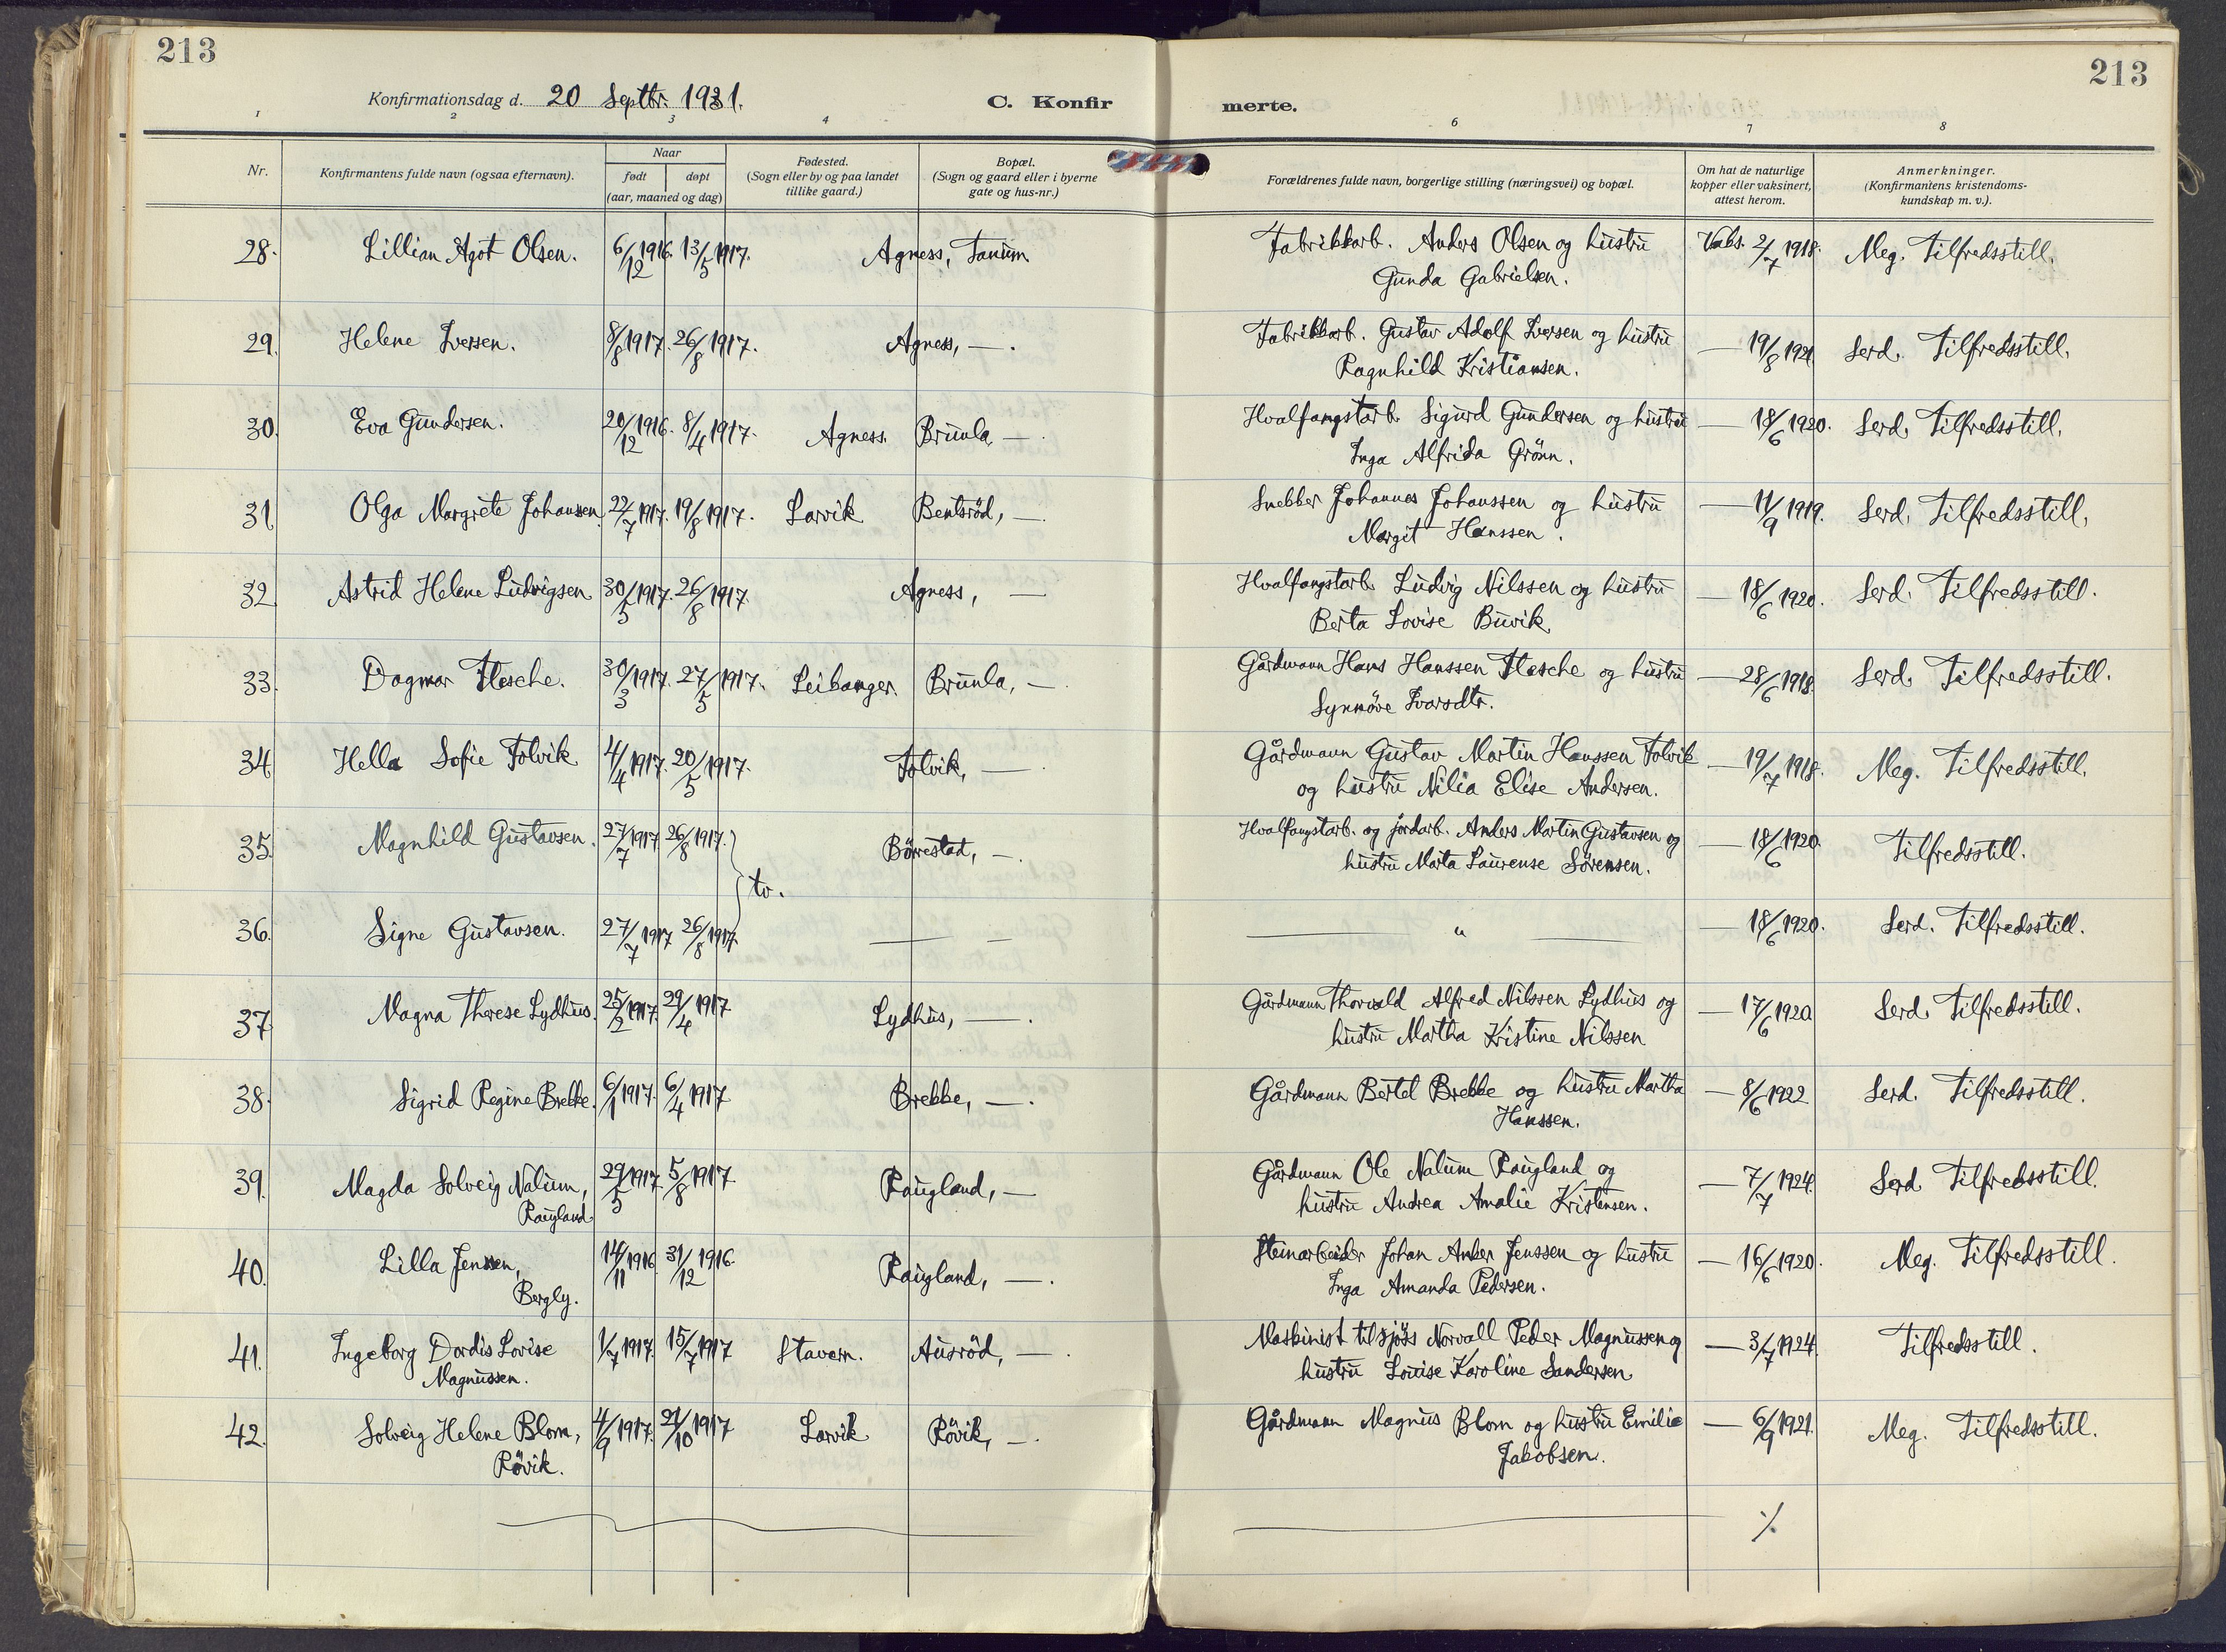 213
213
Konfirmationsdag d. 20 Septbr. 1931.
C. Konfirmerte.
1 2 3 4 6 7 8
Nr. Konfirmantens fulde navn (ogsaa efternavn). Naar født døpt (aar, maaned og dag) Fødested. (Sogn eller by og paa landet tillike gaard.) Bopæl. (Sogn og gaard eller i byerne gate og hus-nr.) Forældrenes fulde navn, borgerlige stilling (næringsvei) og bopæl. Om hat de naturlige kopper eller vaksinert, attest herom. Anmerkninger. (Konfirmantens kristendoms-kundskap m. v.).
28. Lillian Agot Olsen. 6/12 1916. 13/5 1917. Agness, Tanum Fabrikkarb. Anders Olsen og hustru Vaks. 2/7 1918. Meg. Tilfredsstill.
Gunda Gabrielsen.
29. Helene Iversen. 8/8 1917. 26/8 1917. Agness, —. Fabrikkarb. Gustav Adolf Iversen og hustru — 19/8 1921. Serd. Tilfredsstill.
Ragnhild Kristiansen.
30. Eva Gundersen. 20/12 1916. 8/4 1917. Agness. Brunla, —. Hvalfangstarb. Sigurd Gundersen og hustru — 18/6 1920. Serd. Tilfredsstill.
Inga Alfrida Grönn.
31. Olga Margrete Johanssen. 22/7 1917. 19/8 1917. Larvik Bentsröd, —. Snekker Johannes Johanssen og hustru — 11/9 1919. Serd. Tilfredsstill.
Margit Hanssen.
32. Astrid Helene Ludvigsen 30/5 1917. 26/8 1917. Agness, — Hvalfangstarb. Ludvig Nilssen og hustru — 18/6 1920. Serd. Tilfredsstill.
Berta Lovise Buvik.
33. Dagmar Flesche. 30/3 1917. 27/5 1917. Leikanger. Brunla, —. Gårdmann Hans Hanssen Flesche og hustru — 28/6 1918. Serd. Tilfredsstill.
Synnöve Ivarsdtr.
34. Hella Sofie Folvik 4/4 1917. 20/5 1917. Folvik, —. Gårdmann Gustav Martin Hanssen Folvik — 19/7 1918. Meg. Tilfredsstill.
og hustru Nilia Elise Andersen.
35. Magnhild Gustavsen. 27/7 1917 26/8 1917. Börrestad, —. Hvalfangstarb. og jordarb. Anders Martin Gustavsen og — 18/6 1920. Tilfredsstill.
hustru Marta Laurense Sörensen.
tv.
36. Signe Gustavsen. 27/7 1917 26/8 1917. — — — " — — 18/6 1920. Serd. Tilfredsstill.
37. Magna Therese Lydhus. 25/2 1917. 29/4 1917 Lydhus, —. Gårdmann Thorvald Alfred Nilssen Lydhus og — 17/6 1920. Serd. Tilfredsstill.
hustru Martha Kristine Nilssen
38. Sigrid Regine Brekke. 6/1 1917. 6/4 1917 Brekke, —. Gårdmann Bertel Brekke og hustru Martha — 8/6 1922 Serd. Tilfredsstill.
Hanssen.
39. Magda Solveig Nalum, 29/5 1917. 5/8 1917. Raugland, — Gårdmann Ole Nalum Raugland og — 7/7 1924. Serd Tilfredsstill.
Raugland. hustru Andrea Amalie Kristensen.
40. Lilla Jenssen, 14/11 1916. 31/12 1916. Raugland, —. Steinarbeider Johan Anker Jenssen og hustru — 16/6 1920. Meg. Tilfredsstill.
Bergly. Inga Amanda Pedersen.
41. Ingeborg Dordis Lovise 1/7 1917. 15/7 1917 Stavern. Ausröd, —. Maskinist tilsjöss Norvall Peder Magnussen og — 3/7 1924. Tilfredsstill.
Magnussen. hustru Louise Karoline Sandersen
42. Solveig Helene Blom, 4/9 1917. 21/10 1917 Larvik Rövik, —. Gårdmann Magnus Blom og hustru Emilie — 6/9 1921. Meg. Tilfredsstill.
Rövik. Jakobsen.